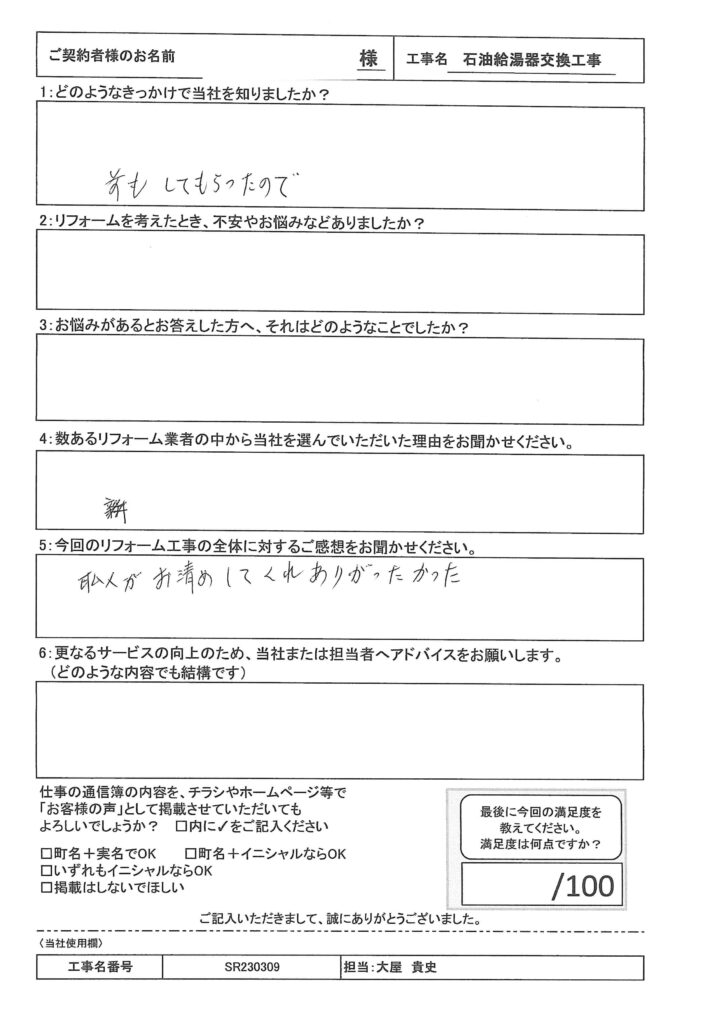 ご契約者様のお名前 様 工事名 石油給湯器交換工事
1:どのようなきっかけで当社を知りましたか?
前も してもらったので
2:リフォームを考えたとき、不安やお悩みなどありましたか?
3:お悩みがあるとお答えした方へ、それはどのようなことでしたか?
4:数あるリフォーム業者の中から当社を選んでいただいた理由をお聞かせください。
5:今回のリフォーム工事の全体に対するご感想をお聞かせください。
お清めしてくれありがったかった
6:更なるサービスの向上のため、当社または担当者へアドバイスをお願いします。
(どのような内容でも結構です)
仕事の通信簿の内容を、チラシやホームページ等で
「お客様の声」として掲載させていただいても
よろしいでしょうか? □内に✓をご記入ください
□町名+実名でOK □町名+イニシャルならOK
□いずれもイニシャルならOK
□掲載はしないでほしい
最後に今回の満足度を
教えてください。
満足度は何点ですか?
/100
ご記入いただきまして、誠にありがとうございました。
〈当社使用欄〉
工事名番号 SR230309 担当:大屋 貴史